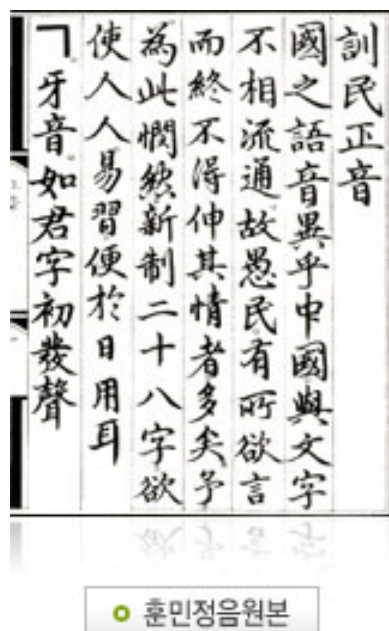 訓民正音
國之語音異乎中國與文字
不相流通故愚民有所欲言
而終不得伸其情者多矣予
為此憫然新制二十八字欲
使人人易習便於日用耳
ㄱ。牙音。如君字初發聲
훈민정음원본